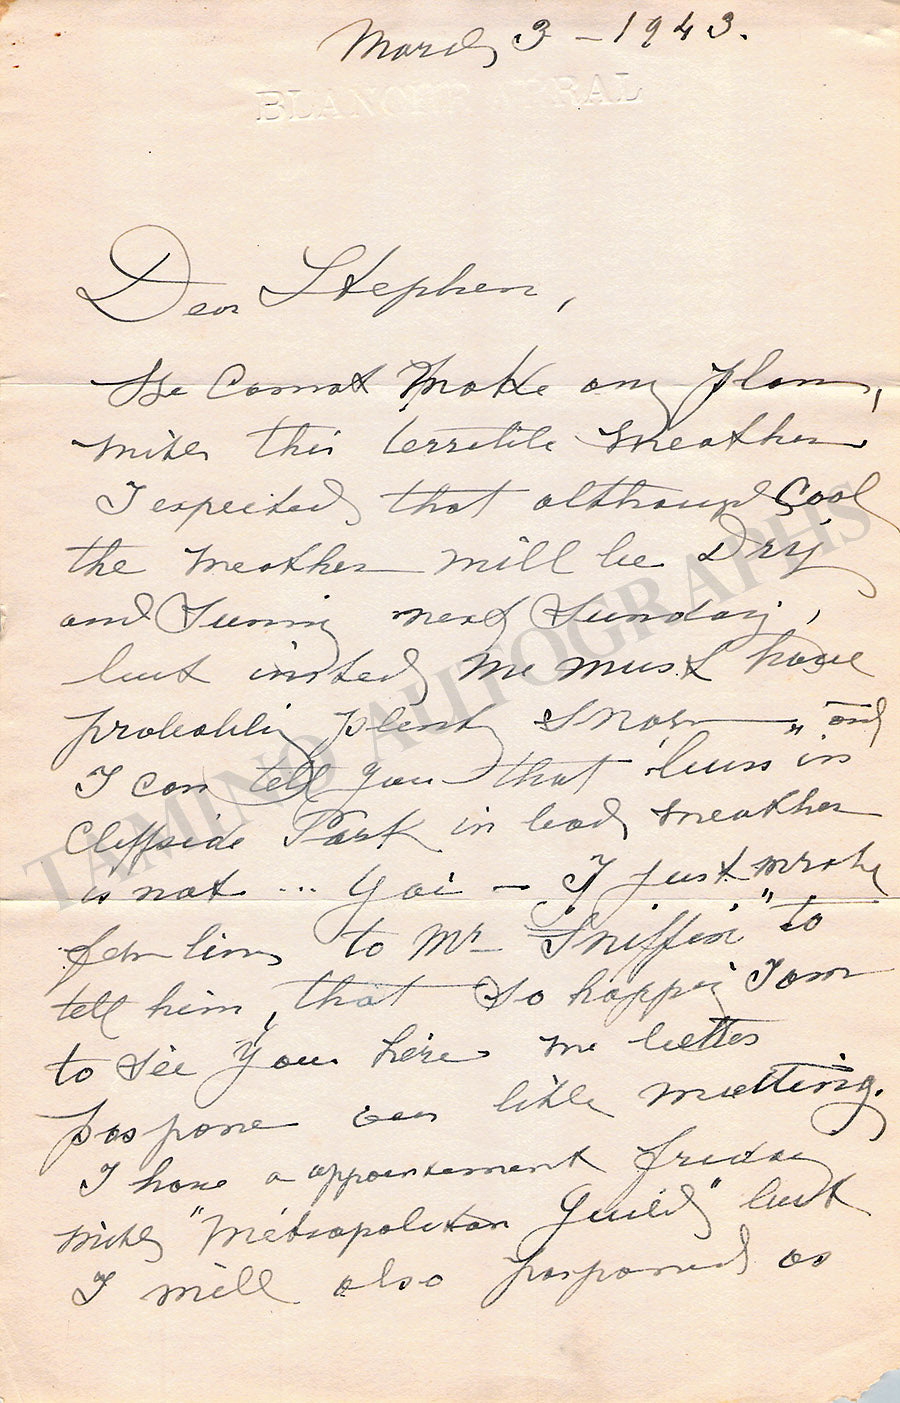 March 3 – 1943.
BLANCHE ARRAL
Dear Stephen,
We Cannot Make any plans,
with this terrible weather
I expected, that although Cool
the weather will be Dry
and Sunny next Sunday,
but insted we must have
probably plenty snow — " and
I can tell you that buss in
Cliffside Park in bad weather
is not ... Gai – I just wrote
few lines to Mr "Sniffin" to
tell him, that so happy I am
to see You here we better
pospone our litle meetting.
I have a appointement friday
with "Métropolitan Guild" but
I will also posponed as
TAMINO AUTOGRAPHS